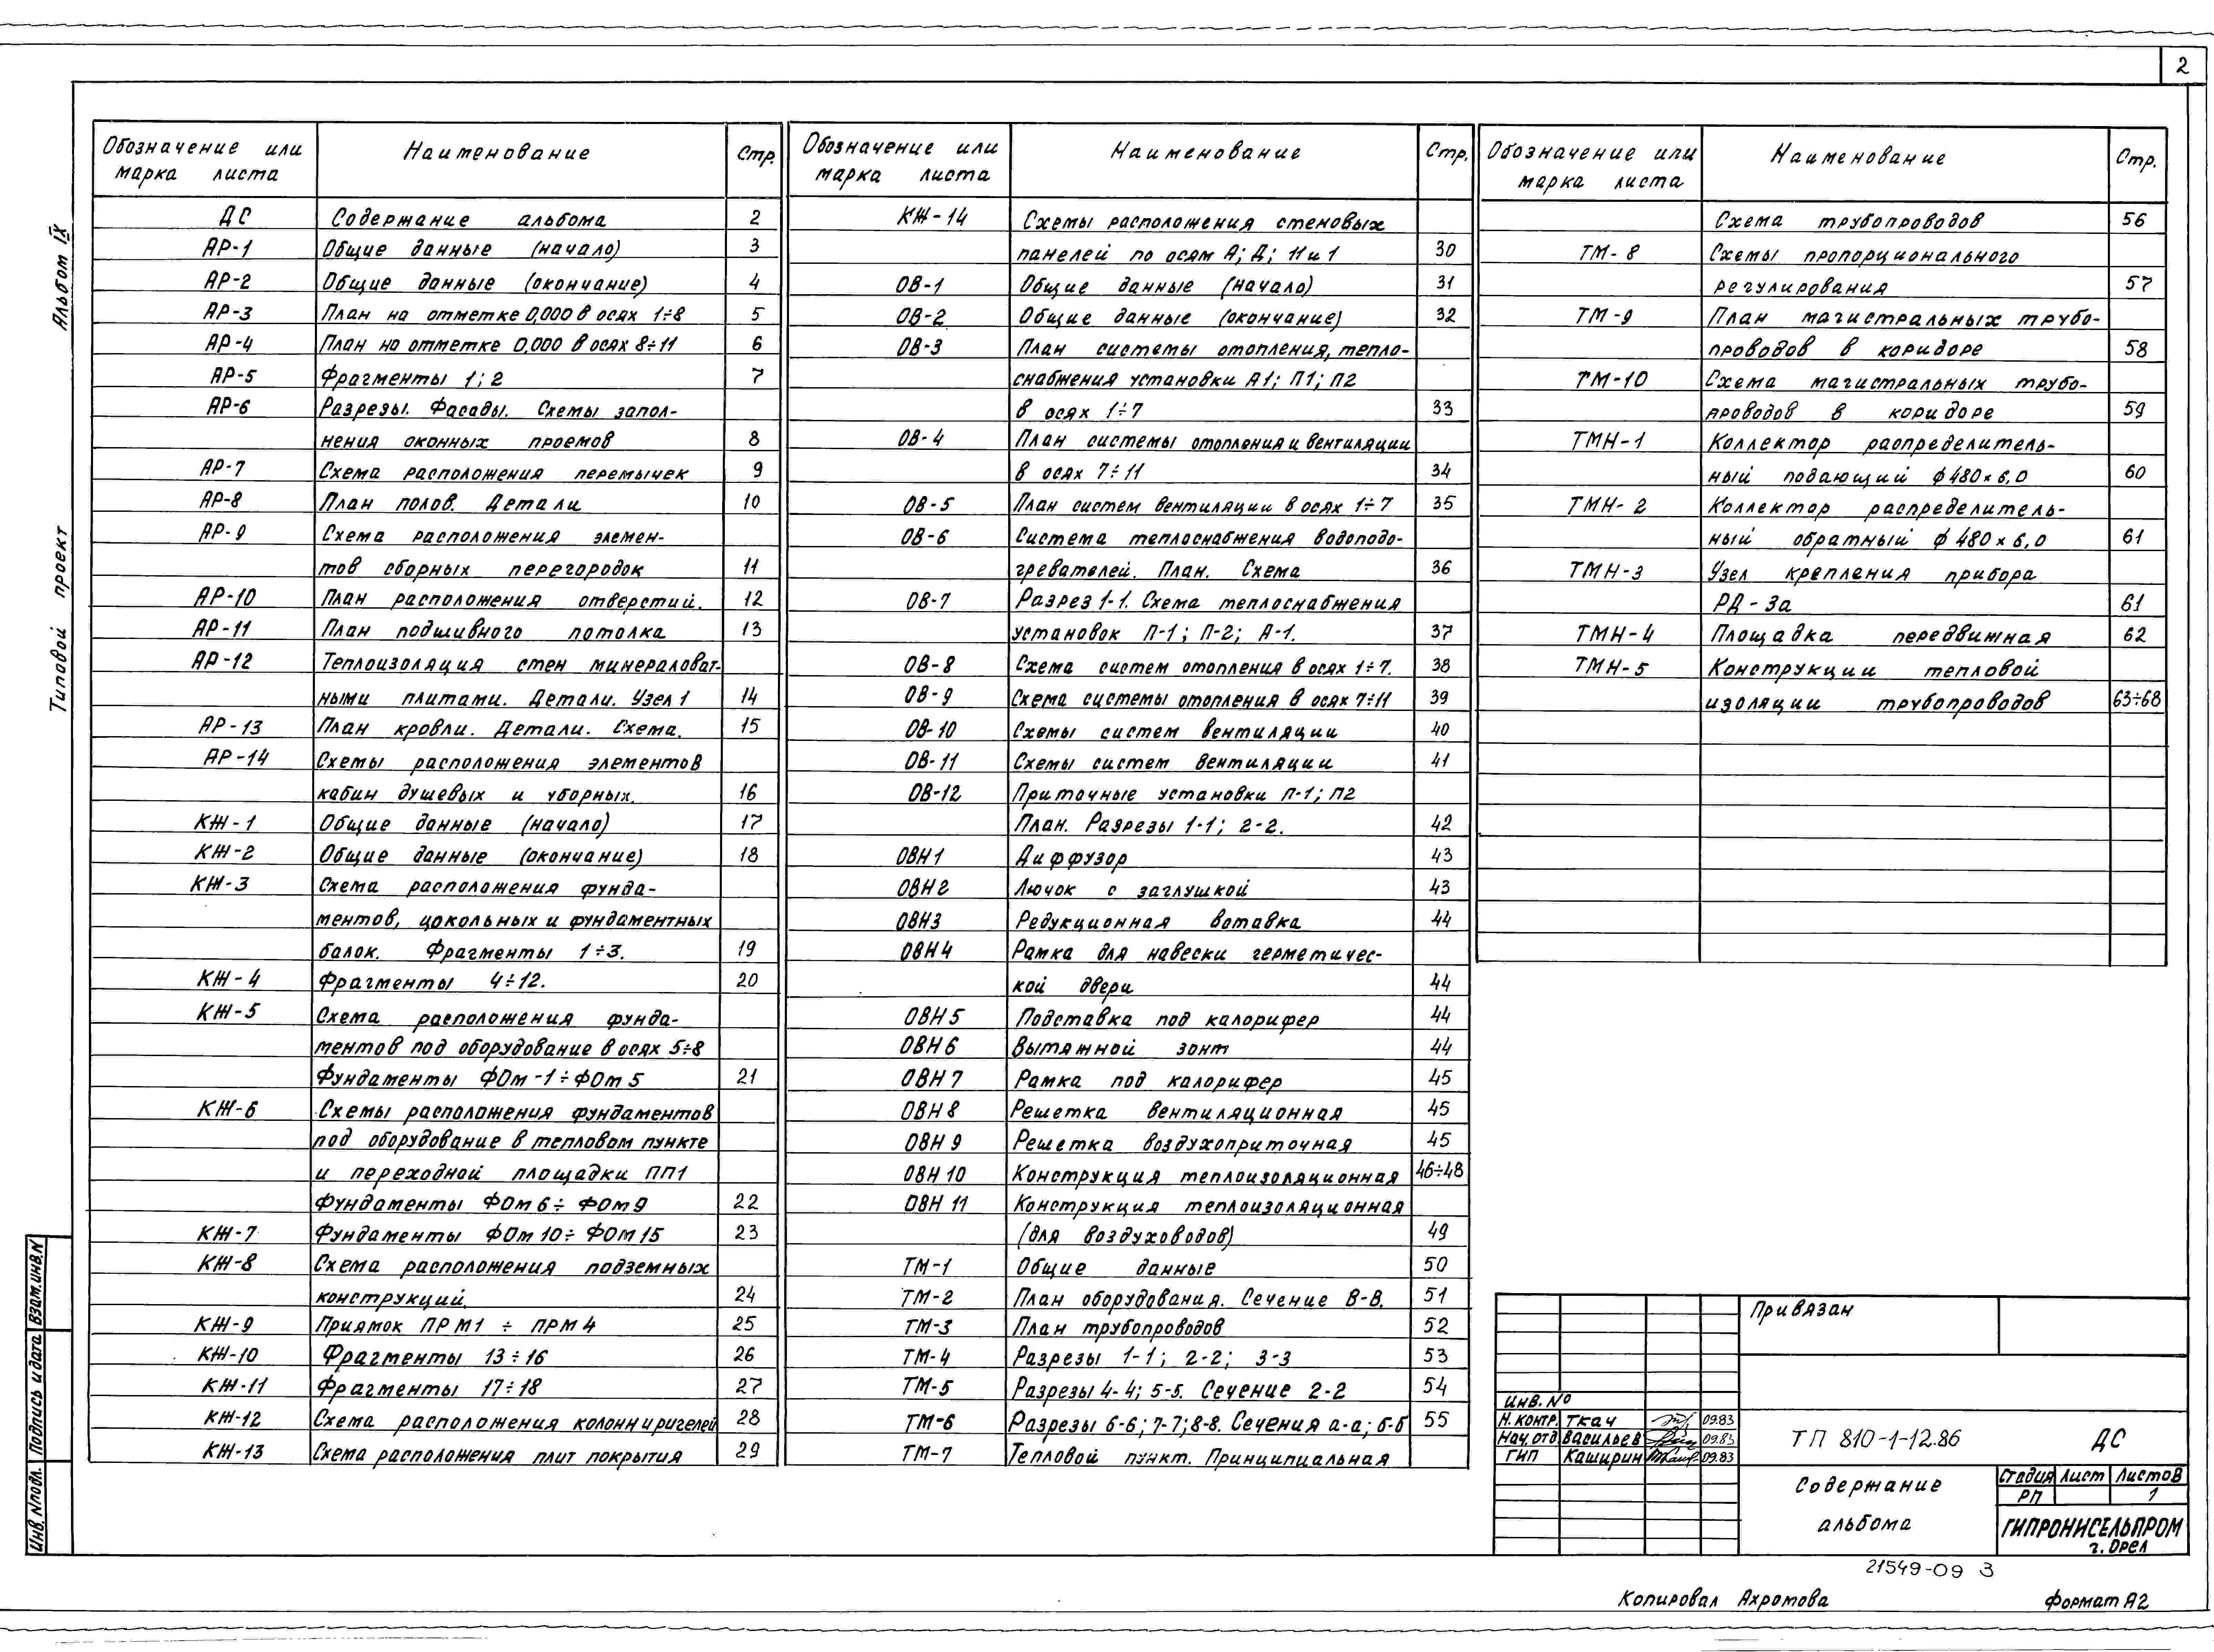 2
Альбом IX
Типовой проект
Взам.инв.N
Подпись и дата
Инв.Nподл.
Обозначение или марка листа Наименование Стр.
ДС Содержание альбома 2
АР-1 Общие данные (начало) 3
АР-2 Общие данные (окончание) 4
АР-3 План на отметке 0,000 в осях 1÷8 5
АР-4 План на отметке 0,000 в осях 8÷11 6
АР-5 Фрагменты 1; 2 7
АР-6 Разрезы. Фасады. Схемы запол-
нения оконных проемов 8
АР-7 Схема расположения перемычек 9
АР-8 План полов. Детали 10
АР-9 Схема расположения элемен-
тов сборных перегородок 11
АР-10 План расположения отверстий. 12
АР-11 План подшивного потолка 13
АР-12 Теплоизоляция стен минераловат-
ными плитами. Детали. Узел 1 14
АР-13 План кровли. Детали. Схема. 15
АР-14 Схемы расположения элементов
кабин душевых и уборных. 16
КЖ-1 Общие данные (начало) 17
КЖ-2 Общие данные (окончание) 18
КЖ-3 Схема расположения фунда-
ментов, цокольных и фундаментных
балок. Фрагменты 1÷3. 19
КЖ-4 Фрагменты 4÷12. 20
КЖ-5 Схема расположения фунда-
ментов под оборудование в осях 5÷8
Фундаменты ФОм-1÷ФОм5 21
КЖ-6 Схемы расположения фундаментов
под оборудование в тепловом пункте
и переходной площадки ПП1
Фундаменты ФОм6÷ФОм9 22
КЖ-7 Фундаменты ФОм10÷ФОм15 23
КЖ-8 Схема расположения подземных
конструкций. 24
КЖ-9 Приямок ПРМ1 ÷ ПРМ4 25
КЖ-10 Фрагменты 13÷16 26
КЖ-11 Фрагменты 17÷18 27
КЖ-12 Схема расположения колонн и ригелей 28
КЖ-13 Схема расположения плит покрытия 29
Обозначение или марка листа Наименование Стр.
КЖ-14 Схемы расположения стеновых
панелей по осям А; Д; 11 и 1 30
ОВ-1 Общие данные (начало) 31
ОВ-2 Общие данные (окончание) 32
ОВ-3 План системы отопления, тепло-
снабжения установки А1; П1; П2
в осях 1÷7 33
ОВ-4 План системы отопления и вентиляции
в осях 7÷11 34
ОВ-5 План систем вентиляции в осях 1÷7 35
ОВ-6 Система теплоснабжения водоподо-
гревателей. План. Схема 36
ОВ-7 Разрез 1-1. Схема теплоснабжения
установок П-1; П-2; А-1. 37
ОВ-8 Схема систем отопления в осях 1÷7. 38
ОВ-9 Схема системы отопления в осях 7÷11 39
ОВ-10 Схемы систем вентиляции 40
ОВ-11 Схемы систем вентиляции 41
ОВ-12 Приточные установки П-1; П2
План. Разрезы 1-1; 2-2. 42
ОВН1 Диффузор 43
ОВН2 Лючок с заглушкой 43
ОВН3 Редукционная вставка 44
ОВН4 Рамка для навески герметичес-
кой двери 44
ОВН5 Подставка под калорифер 44
ОВН6 Вытяжной зонт 44
ОВН7 Рамка под калорифер 45
ОВН8 Решетка вентиляционная 45
ОВН9 Решетка воздухоприточная 45
ОВН10 Конструкция теплоизоляционная 46÷48
ОВН11 Конструкция теплоизоляционная
(для воздуховодов) 49
ТМ-1 Общие данные 50
ТМ-2 План оборудования. Сечение В-В. 51
ТМ-3 План трубопроводов 52
ТМ-4 Разрезы 1-1; 2-2; 3-3 53
ТМ-5 Разрезы 4-4; 5-5. Сечение 2-2 54
ТМ-6 Разрезы 6-6; 7-7; 8-8. Сечения а-а; б-б 55
ТМ-7 Тепловой пункт. Принципиальная
Обозначение или марка листа Наименование Стр.
Схема трубопроводов 56
ТМ-8 Схемы пропорционального
регулирования 57
ТМ-9 План магистральных трубо-
проводов в коридоре 58
ТМ-10 Схема магистральных трубо-
проводов в коридоре 59
ТМН-1 Коллектор распределитель-
ный подающий ф480×6,0 60
ТМН-2 Коллектор распределитель-
ный обратный ф480×6,0 61
ТМН-3 Узел крепления прибора
РД-3а 61
ТМН-4 Площадка передвижная 62
ТМН-5 Конструкции тепловой
изоляции трубопроводов 63÷68
Привязан
Инв. №
Н.контр. Ткач 09.83
Нач.отд Васильев 09.83
ГИП Каширин 09.83
ТП 810-1-12.86 ДС
Содержание
альбома
Стадия Лист Листов
РП 1
ГИПРОНИСЕЛЬПРОМ
г. Орел
21549-09 3
Копировал Ахромова Формат А2